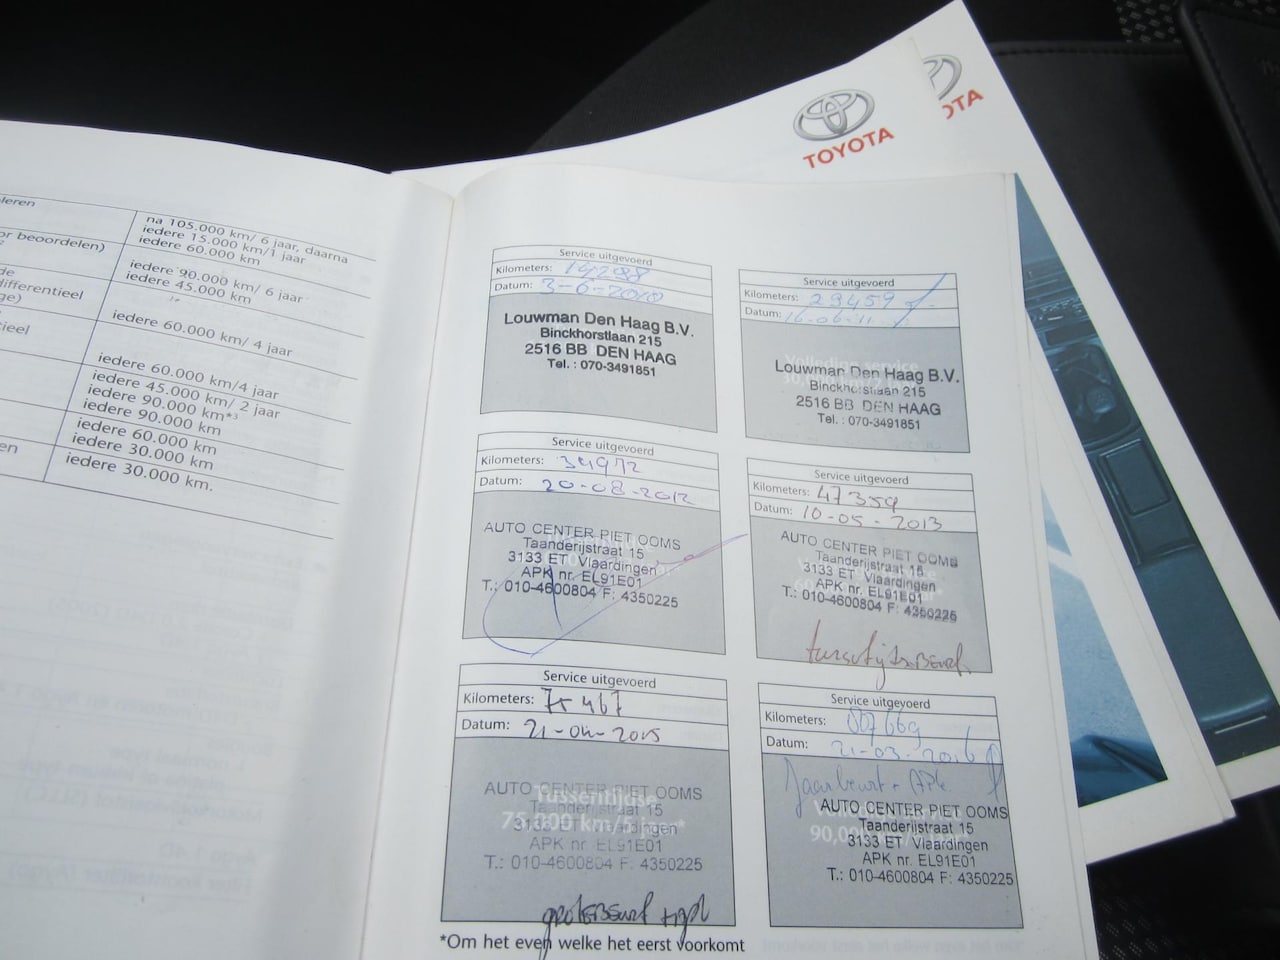 TOYOTA
OTA
leren
na 105.000 km/ 6 jaar, daarna
iedere 15.000 km/1 jaar
or beoordelen)
iedere 60.000 km
iedere 90.000 km/ 6 jaar
de
iedere 45.000 km
differentieel
ge)
iedere 60.000 km/ 4 jaar
tieel
iedere 60.000 km/4 jaar
iedere 45.000 km/ 2 jaar
iedere 90.000 km*3
iedere 90.000 km
iedere 60.000 km
en
iedere 30.000 km
iedere 30.000 km.
Service uitgevoerd
Kilometers: 14298
Datum: 3-6-2010
Louwman Den Haag B.V.
Binckhorstlaan 215
2516 BB DEN HAAG
Tel. : 070-3491851
Service uitgevoerd
Kilometers: 29459
Datum: 16-06-11
Volledige service
Louwman Den Haag B.V.
Binckhorstlaan 215
2516 BB DEN HAAG
Tel. : 070-3491851
Service uitgevoerd
Kilometers: 34972
Datum: 20-08-2012
AUTO CENTER PIET OOMS
Taanderijstraat 15
3133 ET Vlaardingen
APK nr. EL91E01
T.: 010-4600804 F: 4350225
Service uitgevoerd
Kilometers: 47359
Datum: 10-05-2013
AUTO CENTER PIET OOMS
Taanderijstraat 15
3133 ET Vlaardingen
APK nr. EL91E01
T.: 010-4600804 F: 4350225
Service uitgevoerd
Kilometers: 75467
Datum: 21-04-2015
AUTO CENTER PIET OOMS
Tussentijdse
Taanderijstraat 15
75.000 km/5 jaar*
3133 ET Vlaardingen
APK nr. EL91E01
T.: 010-4600804 F: 4350225
grote Beurt + apk
Service uitgevoerd
Kilometers: 887669
Datum: 21-03-2016
Jaarbeurt + APK
AUTO CENTER PIET OOMS
Taanderijstraat 15
90.000
3133 ET Vlaardingen
APK nr. EL91E01
T.: 010-4600804 F: 4350225
*Om het even welke het eerst voorkomt